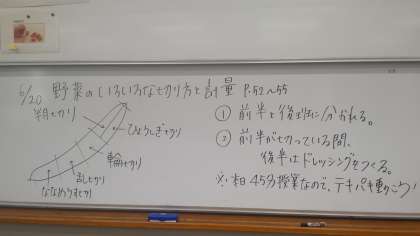 6/20 野菜のいろいろな切り方と計量 P.52~55
半月切り
ひょうしぎ切り
輪切り
乱切り
ななめうす切り
① 前半と後半に分かれる。
② 前半が切っている間、
後半はドレッシングをつくる。
※本日45分授業なので、テキパキ動こう!